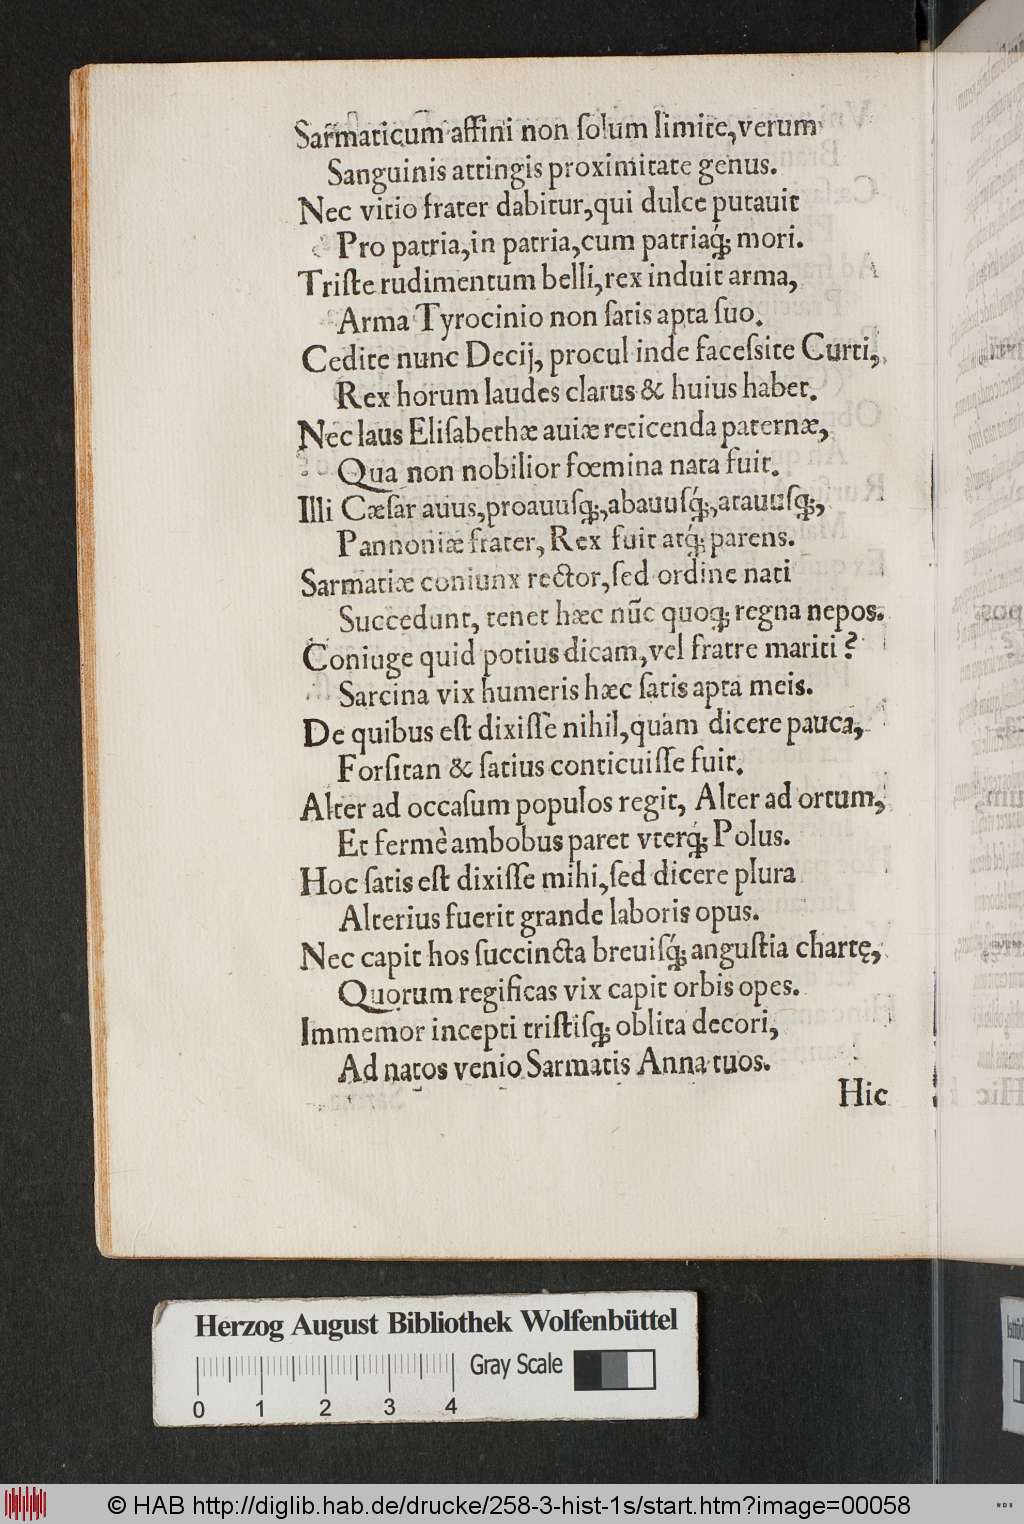 Sarmaticum affini non ſolum limite, verum
Sanguinis attingis proximitate genus.
Nec vitio frater dabitur, qui dulce putauit
Pro patria, in patria, cum patriaq́; mori.
Triſte rudimentum belli, rex induit arma,
Arma Tyrocinio non ſatis apta ſuo.
Cedite nunc Decij, procul inde faceſsite Curti,
Rex horum laudes clarus & huius habet.
Nec laus Eliſabethæ auiæ reticenda paternæ,
Qua non nobilior fœmina nata fuit.
Illi Cæſar auus, proauuſq́;, abauuſq́;, atauuſq́;,
Pannoniæ frater, Rex fuit atq́; parens.
Sarmatiæ coniunx rector, ſed ordine nati
Succedunt, tenet hæc nūc quoq; regna nepos.
Coniuge quid potius dicam, vel fratre mariti?
Sarcina vix humeris hæc ſatis apta meis.
De quibus eſt dixiſſe nihil, quàm dicere pauca,
Forſitan & ſatius conticuiſſe fuit.
Alter ad occaſum populos regit, Alter ad ortum,
Et fermè ambobus paret vterq́; Polus.
Hoc ſatis eſt dixiſſe mihi, ſed dicere plura
Alterius fuerit grande laboris opus.
Nec capit hos ſuccincta breuiſq́; anguſtia chartę,
Quorum regificas vix capit orbis opes.
Immemor incepti triſtiſq; oblita decori,
Ad natos venio Sarmatis Anna tuos.
Hic
Herzog August Bibliothek Wolfenbüttel
Gray Scale
0 1 2 3 4
© HAB http://diglib.hab.de/drucke/258-3-hist-1s/start.htm?image=00058